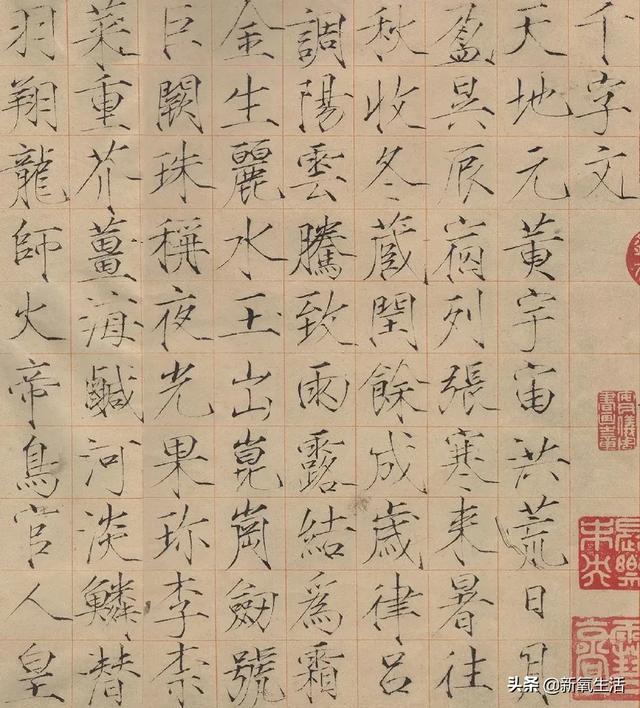 千字文
天地元黄宇宙洪荒日月
盈昃辰宿列張寒来暑往
秋收冬蔵閏餘成歲律吕
調陽雲騰致雨露結爲霜
金生麗水玉出崑崗劒號
巨闕珠稱夜光果珎李柰
菜重芥薑海鹹河淡鱗潜
羽翔龍師火帝鳥官人皇
头条 @新氧生活